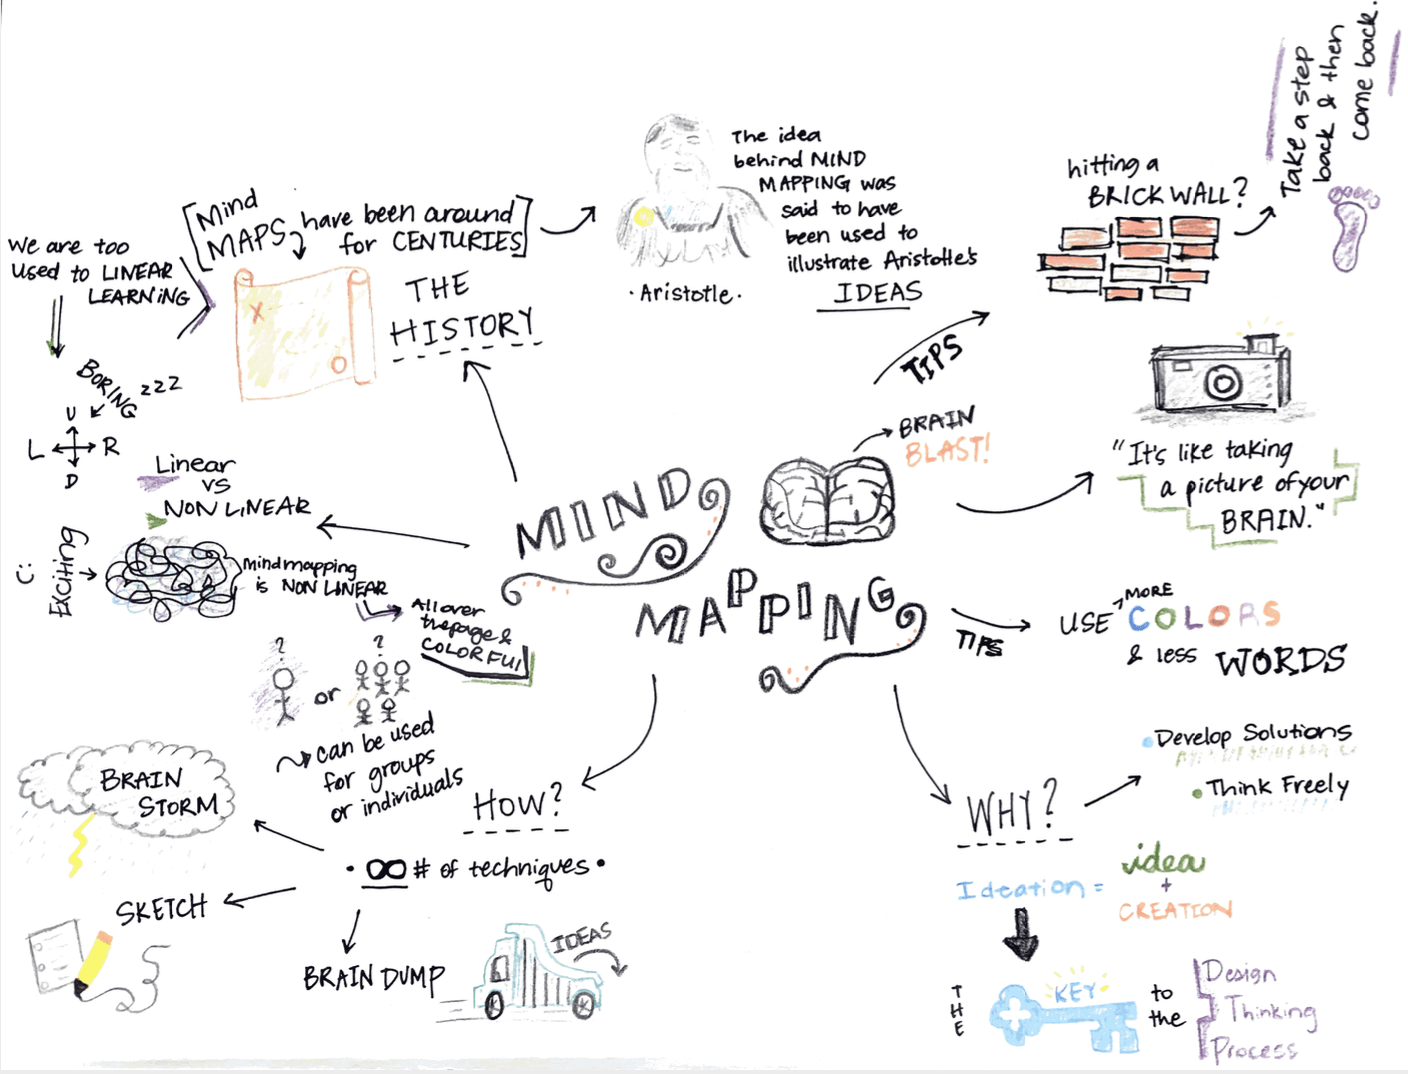 MIND
MAPPING
BRAIN
BLAST!
THE
HISTORY
[Mind
MAPS have been around
for CENTURIES]
·Aristotle·
The idea
behind MIND
MAPPING was
said to have
been used to
illustrate Aristotle's
IDEAS
We are too
used to LINEAR
LEARNING
BORING zzz
U
L R
D
Linear
vs
NON LINEAR
Exciting
C:
Mindmapping
is NON LINEAR
All over
the page &
COLORFUL
? ?
or
can be used
for groups
or individuals
HOW?
• ∞ # of techniques •
BRAIN
STORM
SKETCH
BRAIN DUMP
IDEAS
TIPS
hitting a
BRICK WALL?
Take a step
back & then
come back.
"It's like taking
a picture of your
BRAIN."
TIPS
USE MORE COLORS
& less WORDS
WHY?
• Develop Solutions
• Think Freely
Ideation = idea
+
CREATION
THE
KEY
to
the
Design
Thinking
Process